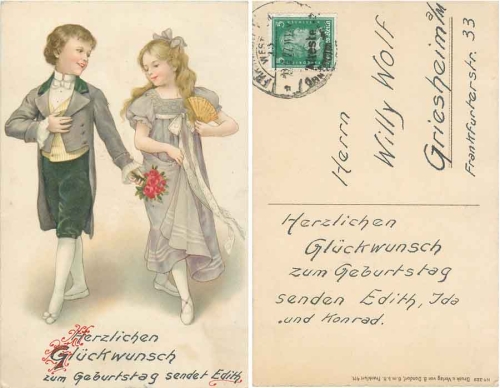 Herzlichen
Glückwunsch
zum Geburtstag sendet Edith.
5
Herrn
Willy Wolf
Griesheim a/M
Frankfurterstr. 33
Herzlichen
Glückwunsch
zum Geburtstag
senden Edith, Ida
und Konrad.